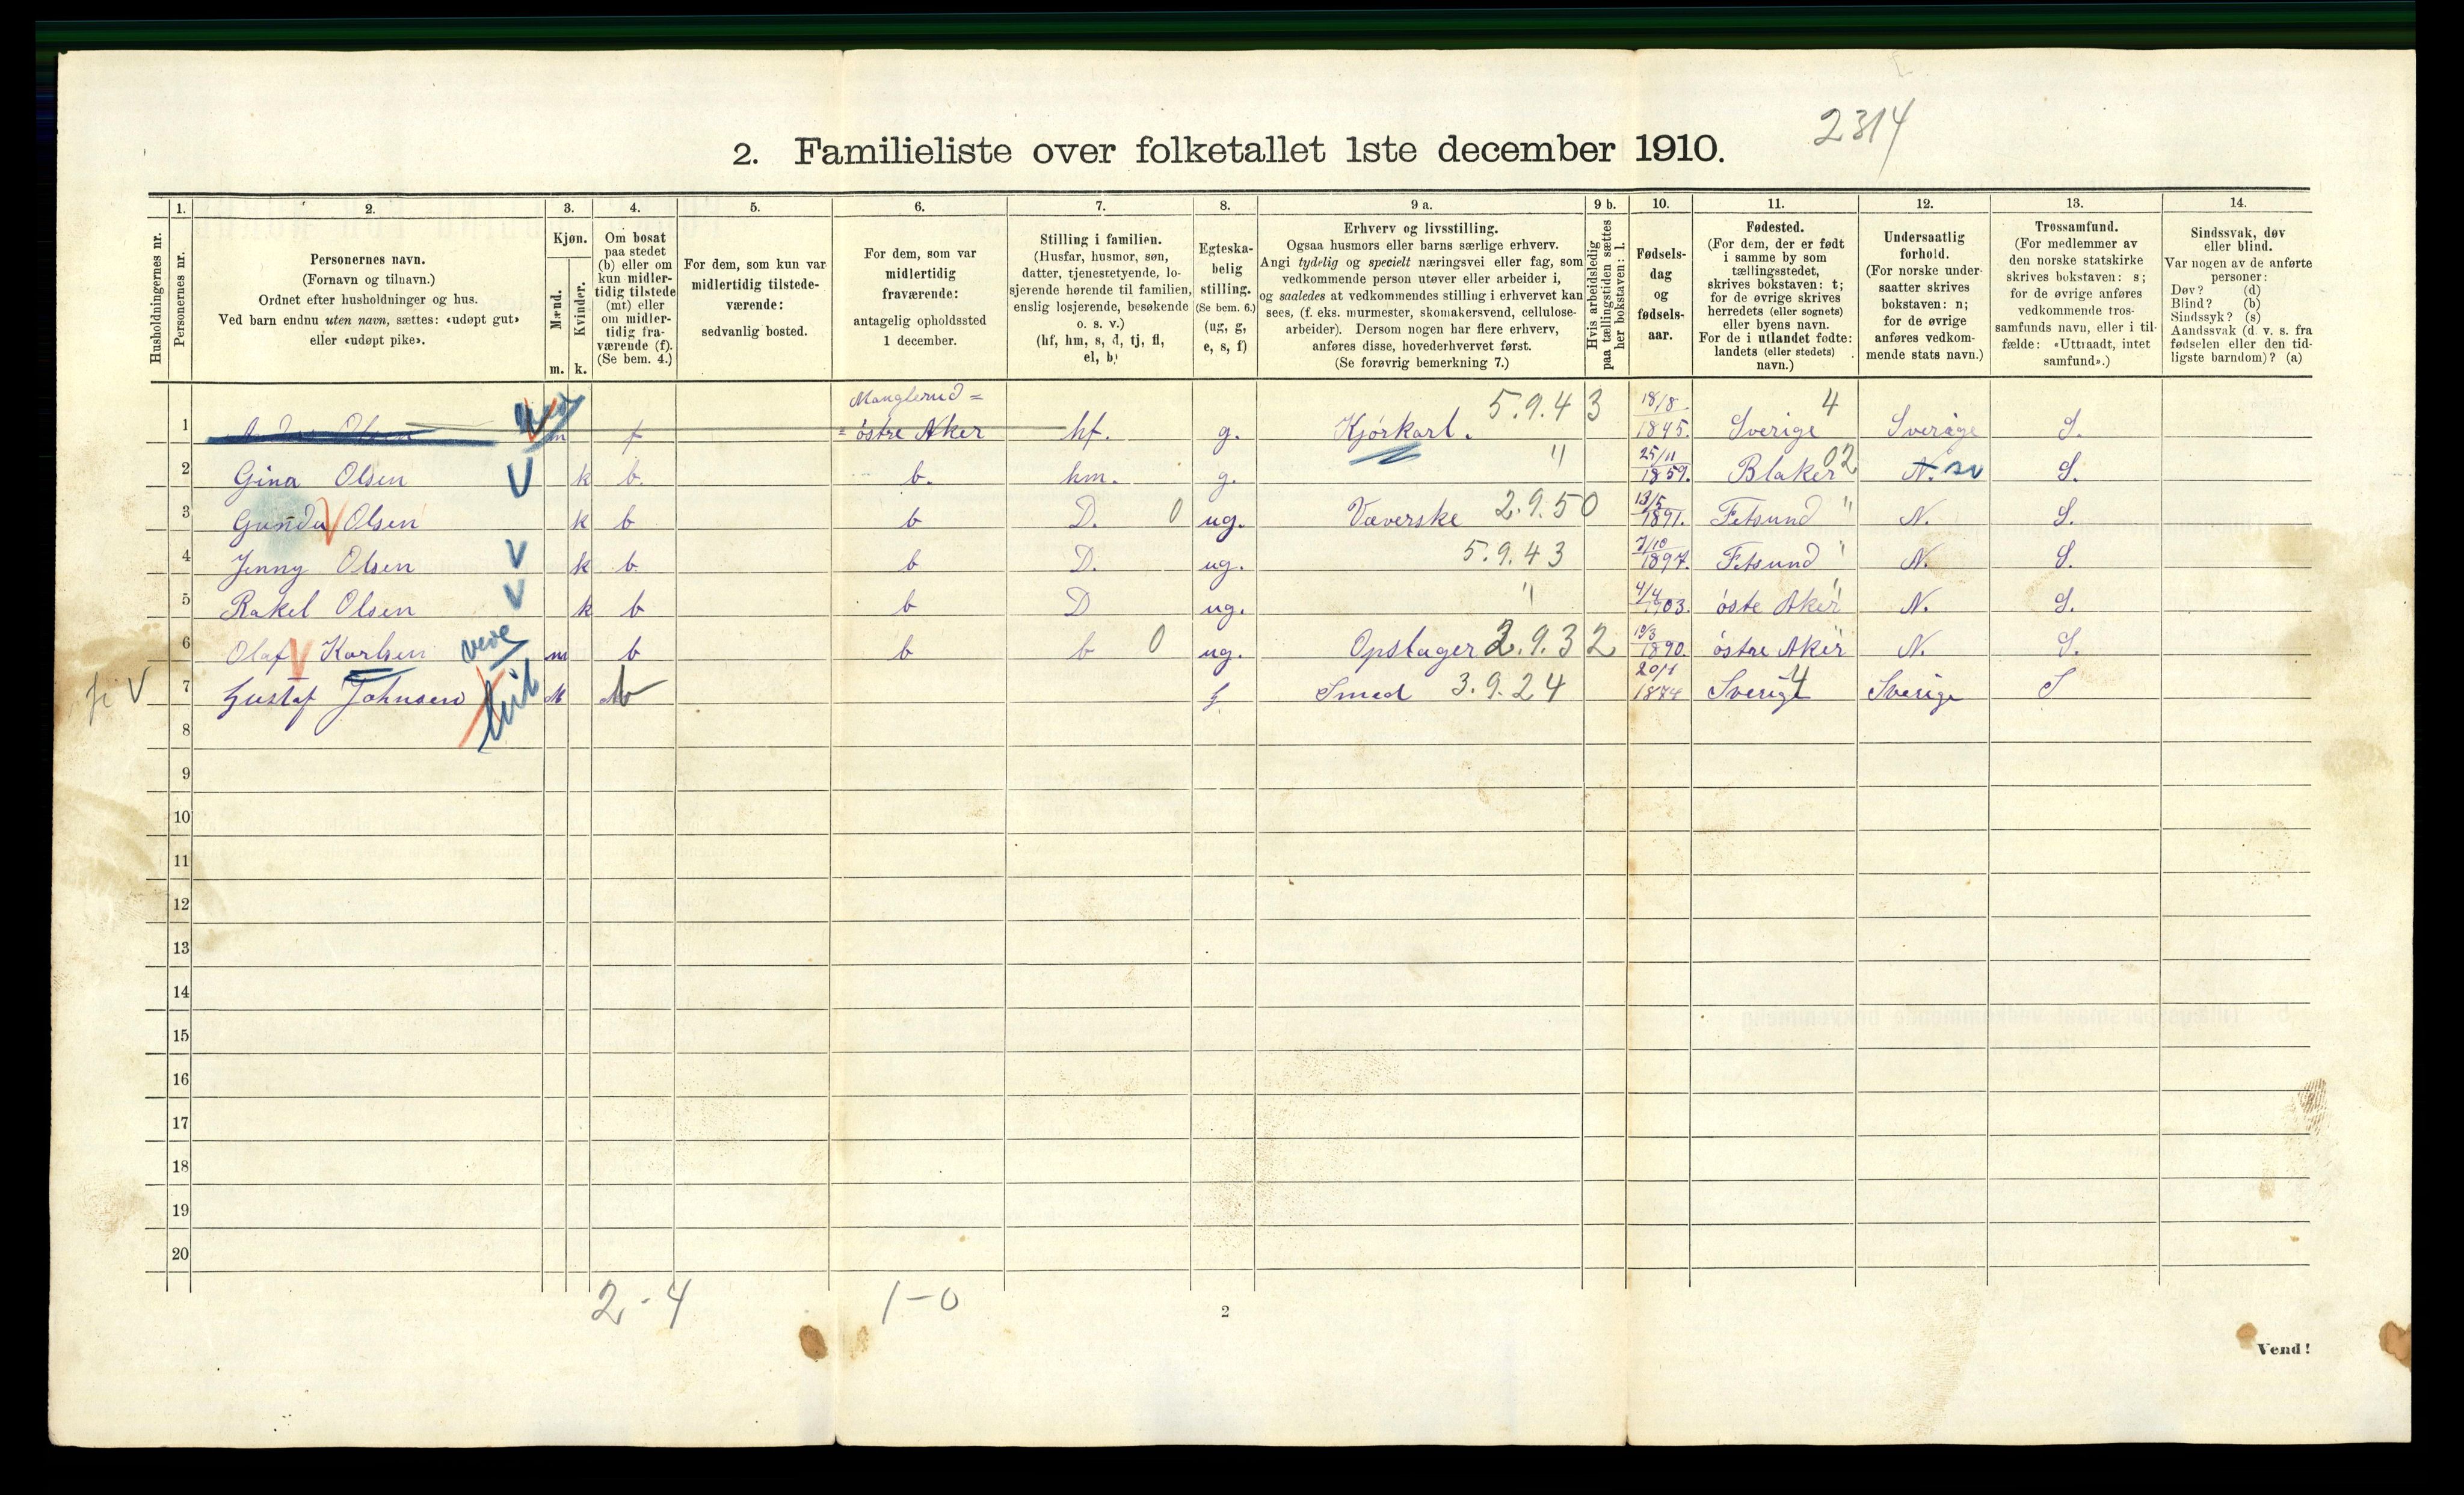 2314
2. Familieliste over folketallet 1ste december 1910.
Husholdningernes nr.
1. Personernes nr.
2. Personernes navn.
(Fornavn og tilnavn.)
Ordnet efter husholdninger og hus.
Ved barn endnu uten navn, sættes: «udøpt gut»
eller «udøpt pike».
3. Kjøn.
Mænd. Kvinder.
m. k.
4. Om bosat
paa stedet
(b) eller om
kun midler-
tidig tilstede
(mt) eller
om midler-
tidig fra-
værende (f).
(Se bem. 4.)
5. For dem, som kun var
midlertidig tilstede-
værende:
sedvanlig bosted.
6. For dem, som var
midlertidig
fraværende:
antagelig opholdssted
1 december.
7. Stilling i familien.
(Husfar, husmor, søn,
datter, tjenestetyende, lo-
sjerende hørende til familien,
enslig losjerende, besøkende
o. s. v.)
(hf, hm, s, d, tj, fl,
el, b)
8. Egteska-
belig
stilling.
(Se bem. 6.)
(ug, g,
e, s, f)
9 a. Erhverv og livsstilling.
Ogsaa husmors eller barns særlige erhverv.
Angi tydelig og specielt næringsvei eller fag, som
vedkommende person utøver eller arbeider i,
og saaledes at vedkommendes stilling i erhvervet kan
sees, (f. eks. murmester, skomakersvend, cellulose-
arbeider). Dersom nogen har flere erhverv,
anføres disse, hovederhvervet først.
(Se forøvrig bemerkning 7.)
9 b. Hvis arbeidsledig
paa tællingstiden sættes
her bokstaven: l.
10. Fødsels-
dag
og
fødsels-
aar.
11. Fødested.
(For dem, der er født
i samme by som
tællingsstedet,
skrives bokstaven: t;
for de øvrige skrives
herredets (eller sognets)
eller byens navn.
For de i utlandet fødte:
landets (eller stedets)
navn.)
12. Undersaatlig
forhold.
(For norske under-
saatter skrives
bokstaven: n;
for de øvrige
anføres vedkom-
mende stats navn.)
13. Trossamfund.
(For medlemmer av
den norske statskirke
skrives bokstaven: s;
for de øvrige anføres
vedkommende tros-
samfunds navn, eller i til-
fælde: «Uttraadt, intet
samfund».)
14. Sindssvak, døv
eller blind.
Var nogen av de anførte
personer:
Døv? (d)
Blind? (b)
Sindssyk? (s)
Aandssvak (d. v. s. fra
fødselen eller den tid-
ligste barndom)? (a)
Manglerud =
1 Olsen m f = østre Aker hf. g. Kjørkarl. 5.9.43 18/8 1845. Sverige 4 Sverige S.
2 Gina Olsen k b. b. hm. g. " 25/11 1859. Blaker 02 N. sv S.
3 Gunda Olsen k b b D. 0 ug. Væverske 2.9.50 13/5 1891. Fetsund " N. S.
4 Jenny Olsen k b b D. ug. 5.9.43 7/10 1897. Fetsund " N. S.
5 Rakel Olsen k b b D ug. " 4/4 1903. øste Aker " N. S.
6 Olaf Karlsen m b b b 0 ug. Opstager 2.9.32 19/3 1890. østre Aker " N. S.
7 Gustaf Johnsen M g Smed 3.9.24 20/1 1874 Sverige 4 Sverige S
8
9
10
11
12
13
14
15
16
17
18
19
20
2-4 1-0
2
Vend!